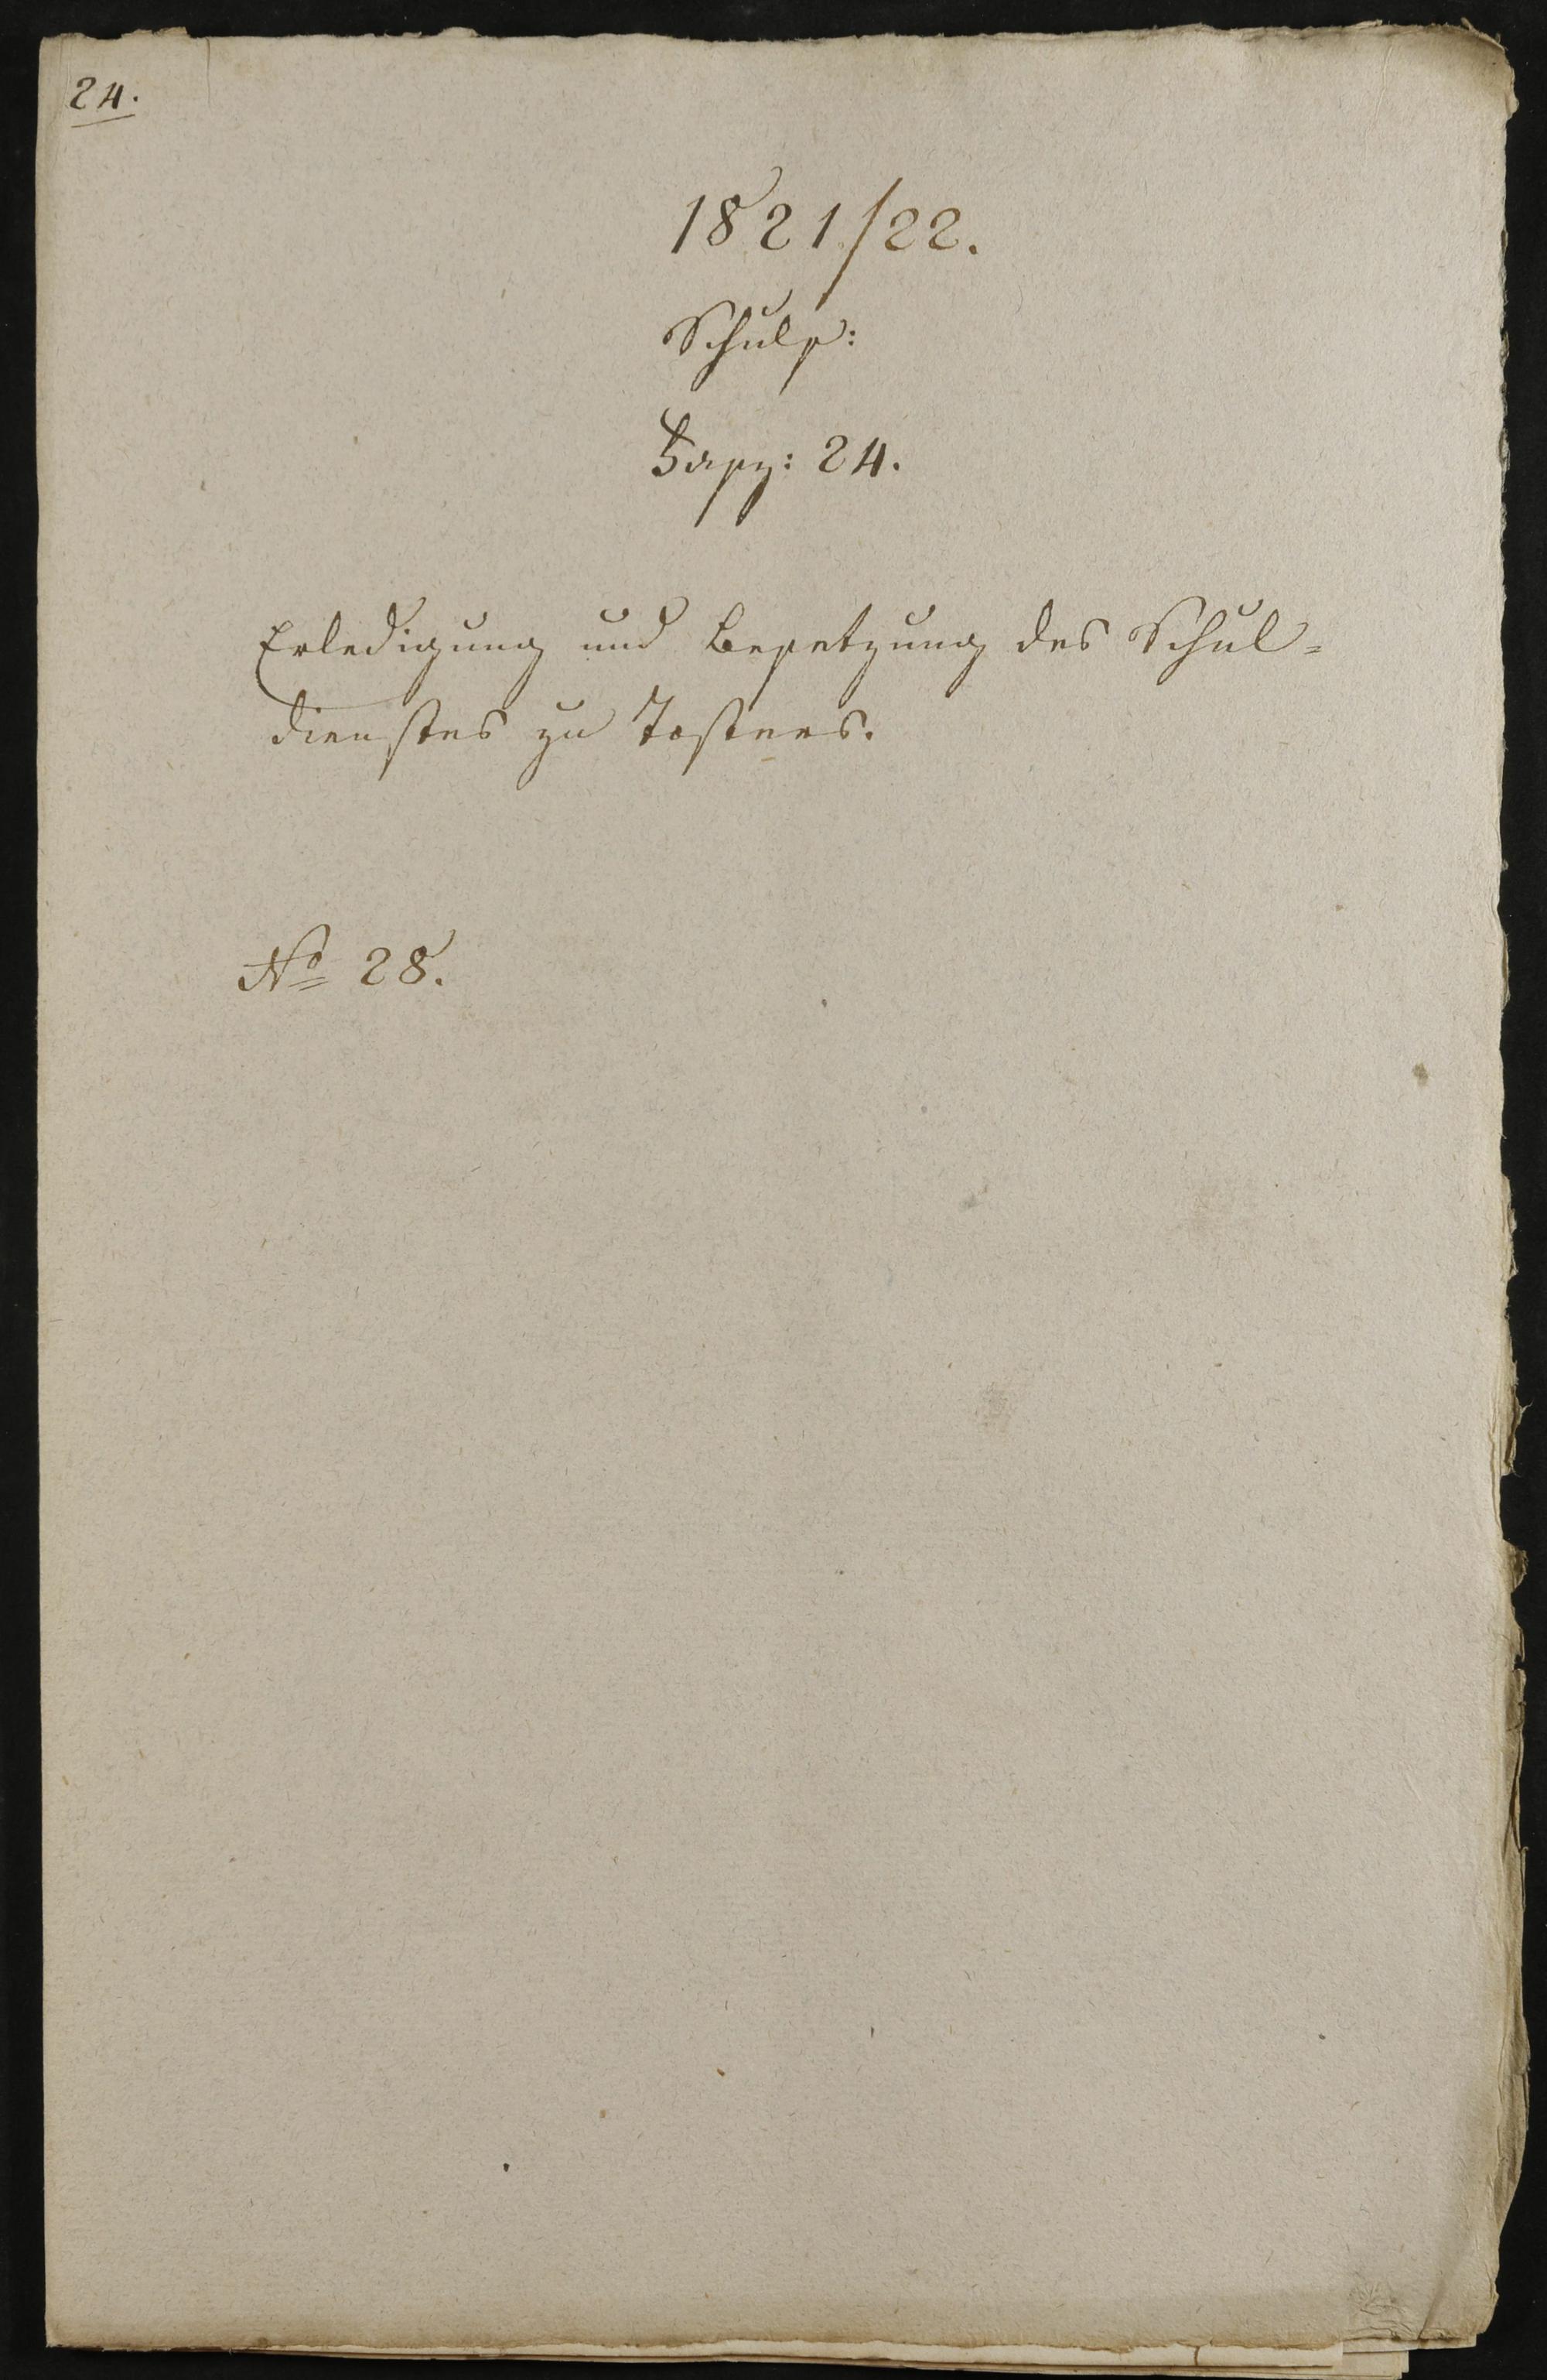 24.
1821/22.
Schuls:
Fasz: 24.
Erledigung und Besetzung des Schul=
dienstes zu Tosters.
No 28.